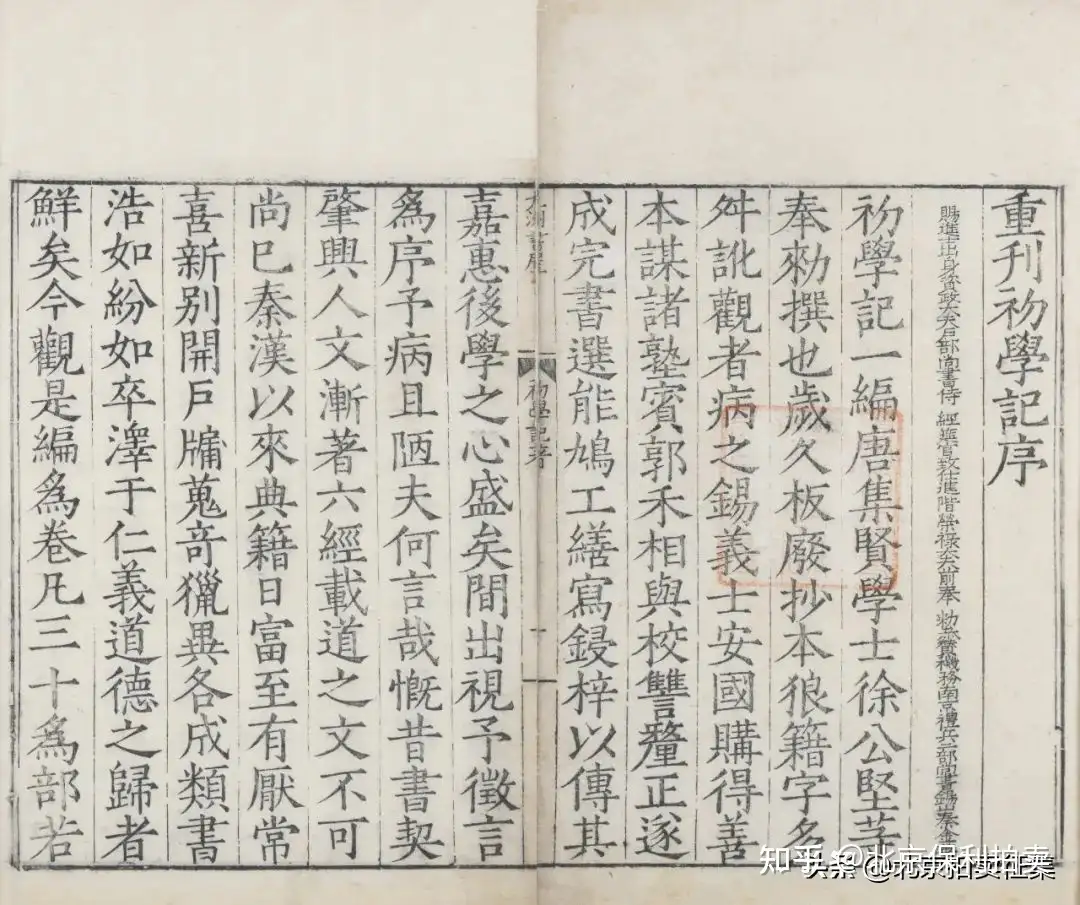 重刊初學記序
賜進出身資政大夫戶部尚書侍經筵官致仕進階榮祿大夫前奉勑參贊機務南京禮兵二部尚書錫山秦金
初學記一編唐集賢學士徐公堅等
奉勑撰也歲久板廢抄本狼籍字多
舛訛觀者病之錫義士安國購得善
本謀諸塾賓郭禾相與校讐釐正遂
成完書選能鳩工繕寫鋟梓以傳其
初學記序
嘉惠後學之心盛矣間出視予徵言
為序予病且陋夫何言哉慨昔書契
肇興人文漸著六經載道之文不可
尚已秦漢以來典籍日富至有厭常
喜新別開戶牖蒐竒獵異各成類書
浩如紛如卒澤于仁義道德之歸者
鮮矣今觀是編為卷凡三十為部若
知乎 @北京保利拍卖